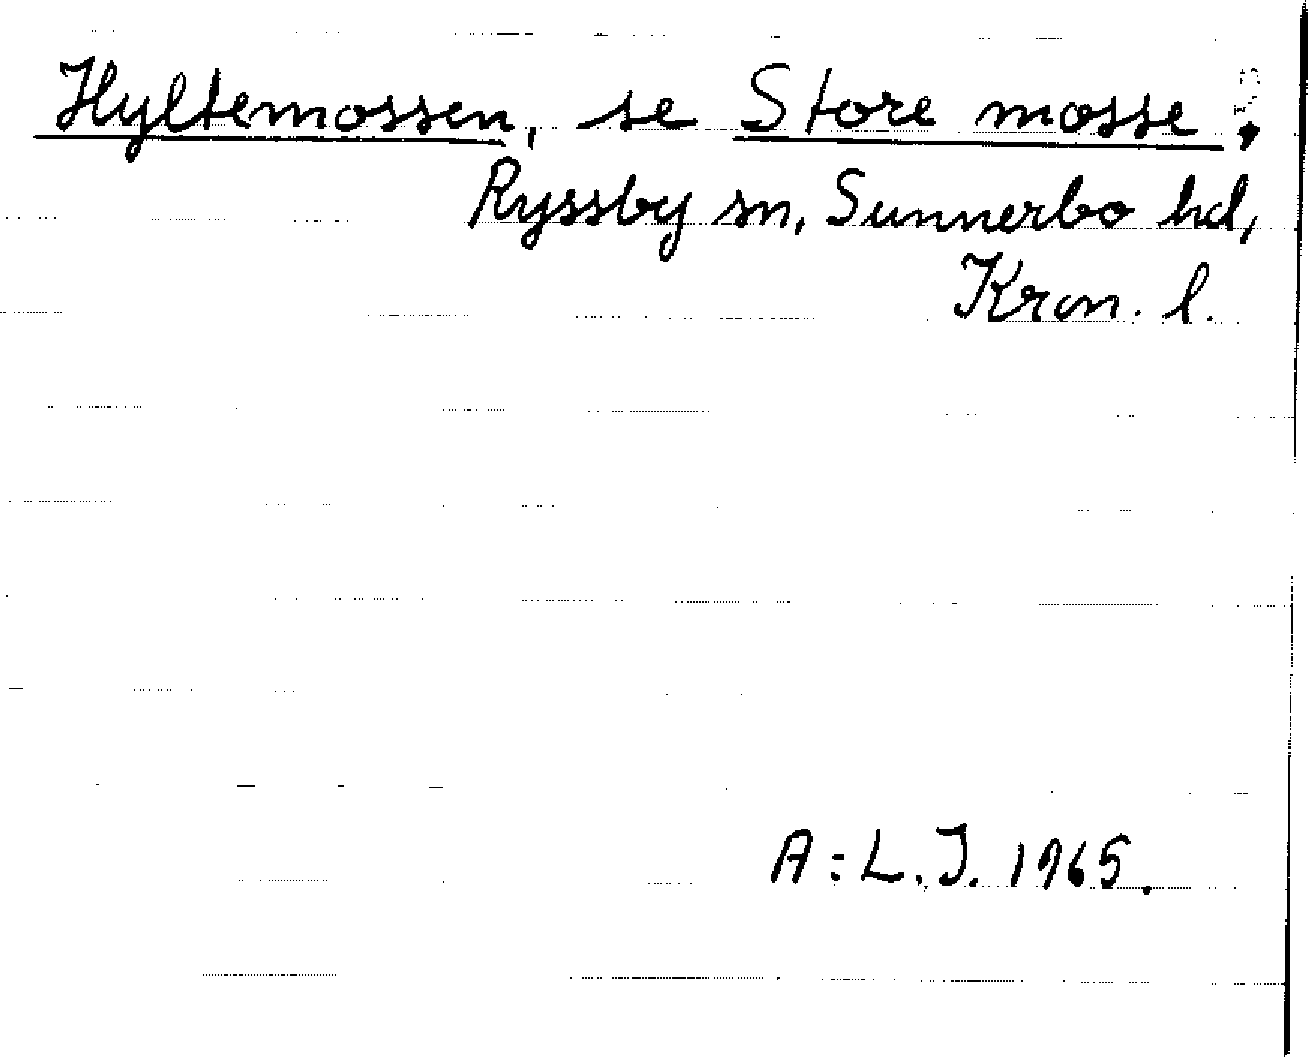 Hyltemossen, se Store mosse.
Ryssby sn, Sunnerbo hd,
Kron. l.
A:L.J. 1965.